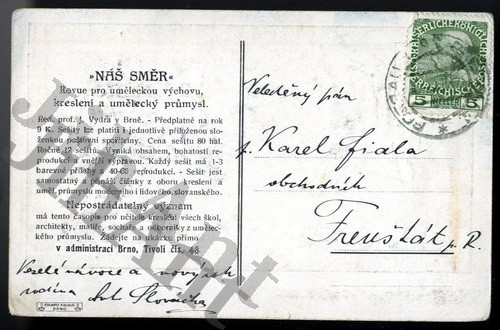 »NÁŠ SMĚR«
Revue pro uměleckou výchovu,
kreslení a umělecký průmysl.
Red. prof. J. Vydra v Brně. - Předplatné na rok
9 K. Sešity lze platiti i jednotlivě přiloženou
složenkou palatní spořitelny. Cena sešitu 80 hal.
Ročně 12 sešitů. Vyniká obsahem, bohatostí re-
produkcí a vnější výpravou. Každý sešit má 1-3
barevné přílohy a 40-60 reprodukcí. - Sešit jest
samostatný a přináší články z oboru kreslení a
průmyslu moderního i lidového, slovanského.
Nepostrádatelný význam
má tento časopis pro učitele kreslení všech škol,
architekty, malíře, sochaře a odborníky z umělec-
kého průmyslu. Žádejte na ukázku přímo
v administraci Brno, Tivoli čís. 48
Veselé vánoce a nový rok
rodina Ant. Slovácka
EDUARD KALOUS
BRNO.
Veleděný pán
p. Karel Fiala
obchodník
Frenštát p. R.
KAISERLICHE KÖNIGLICHE
ÖSTERREICHISCHE
5 HELLER 5